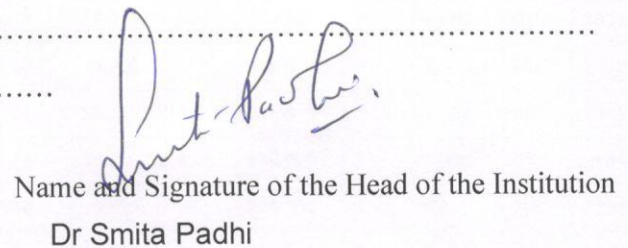 Smita Padhi.
Name and Signature of the Head of the Institution
Dr Smita Padhi